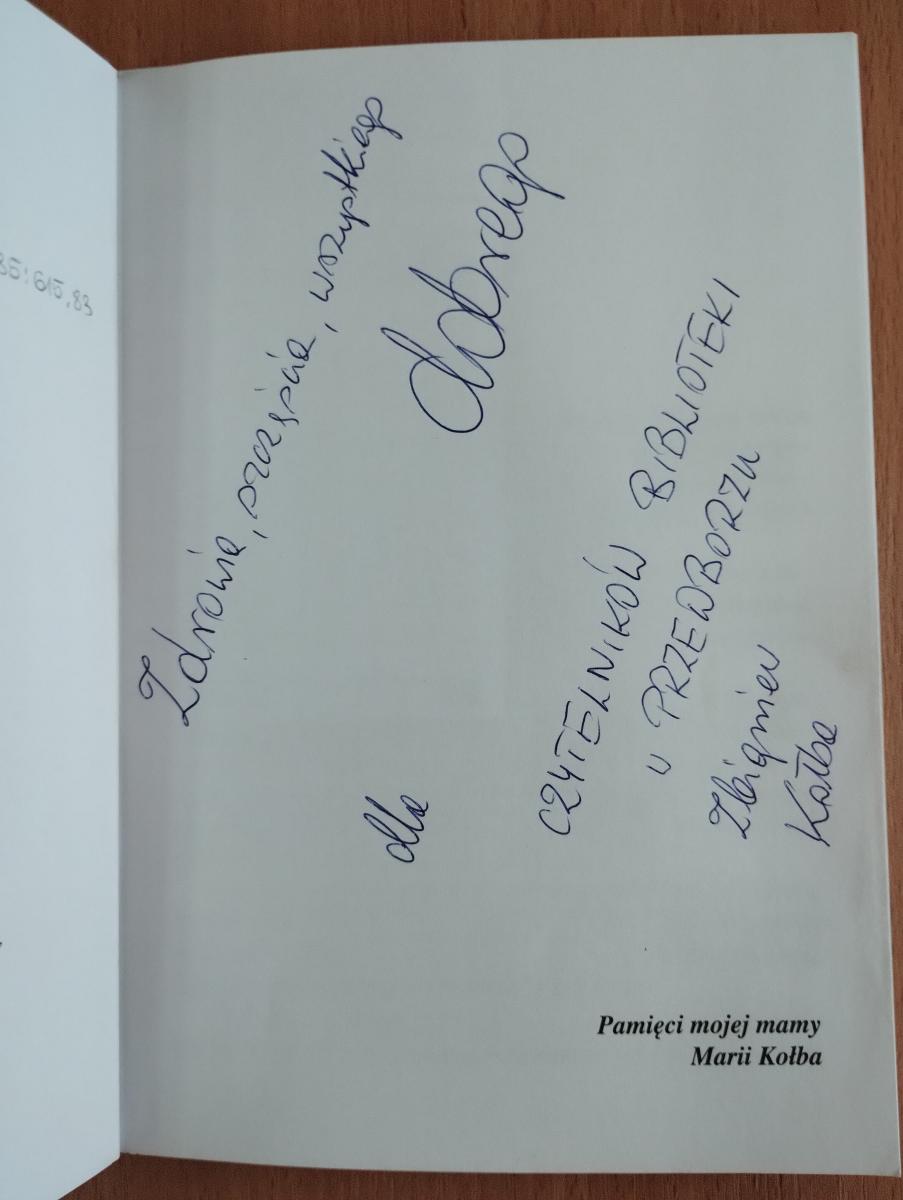 Zdrowia, szczęścia, wszystkiego
dobrego
dla
CZYTELNIKÓW BIBLIOTEKI
w PRZEDBORZU
Zbigniew
Kołba
Pamięci mojej mamy
Marii Kołba
615.83